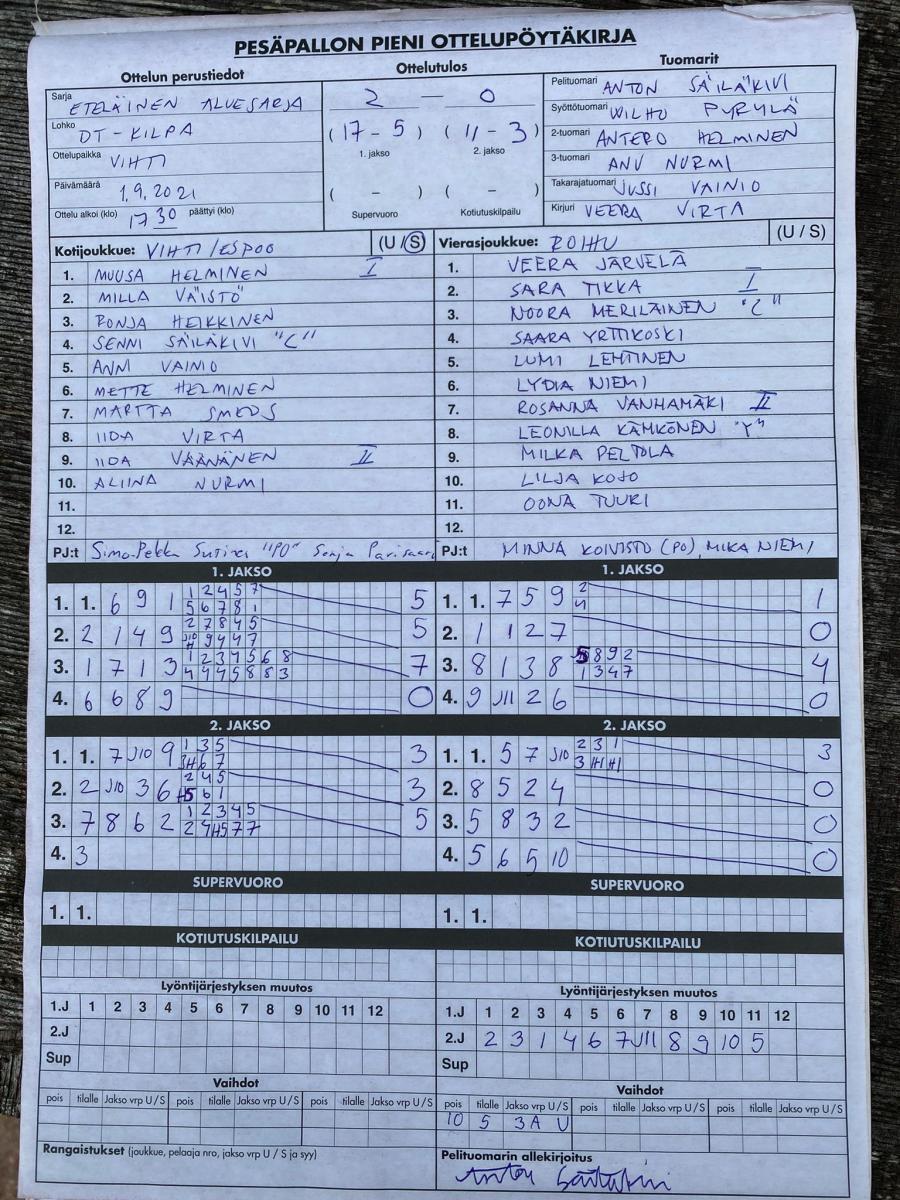 PESÄPALLON PIENI OTTELUPÖYTÄKIRJA
Ottelun perustiedot
Sarja ETELÄINEN ALUESARJA
Lohko DT-KILPA
Ottelupaikka VIHTI
Päivämäärä 1.9.2021
Ottelu alkoi (klo) 17 30 päättyi (klo)
Ottelutulos
2 — 0
(17 - 5) (11 - 3)
1. jakso 2. jakso
( - ) ( - )
Supervuoro Kotiutuskilpailu
Tuomarit
Pelituomari ANTON SÄILÄKIVI
Syöttötuomari WILHO PYRYLÄ
2-tuomari ANTERO HELMINEN
3-tuomari ANU NURMI
Takarajatuomari JUSSI VAINIO
Kirjuri VEERA VIRTA
Kotijoukkue: VIHTI/ESPOO (U/S)
1. MUUSA HELMINEN I
2. MILLA VÄISTÖ
3. RONJA HEIKKINEN
4. SENNI SÄILÄKIVI "C"
5. ANNI VAINIO
6. METTE HELMINEN
7. MARTTA SMEDS
8. IIDA VIRTA
9. IIDA VÄÄNÄNEN II
10. ALIINA NURMI
11.
12.
PJ:t Simo-Pekka "PO" Senja
Vierasjoukkue: ROIHU (U/S)
1. VEERA JÄRVELÄ
2. SARA TIKKA I
3. NOORA MERILÄINEN "C"
4. SAARA YRTTIKOSKI
5. LUMI LEHTINEN
6. LYDIA NIEMI
7. ROSANNA VANHAMÄKI II
8. LEONILLA KÄMKÖNEN "Y"
9. MILKA PELTOLA
10. LILJA KOJO
11. OONA TUURI
12.
PJ:t MINNA KOIVISTO (PO), MIKA NIEMI
1. JAKSO
1. 1. 6 9 1 1 2 4 5 7 5
5 6 7 8 1
2. 2 1 4 9 2 7 8 4 5 5
J10 9 4 4 7
3. 1 7 1 3 1 2 3 4 5 6 8 7
4 4 4 5 8 8 3
4. 6 6 8 9 0
1. JAKSO
1. 1. 7 5 9 2 1
4
2. 1 1 2 7 0
3. 8 1 3 8 5 8 9 2 4
1 3 4 7
4. 9 J11 2 6 0
2. JAKSO
1. 1. 7 J10 9 1 3 5 3
3H 6 7
2. 2 J10 3 6 2 4 5 3
H5 6 1
3. 7 8 6 2 1 2 3 4 5 5
2 4 H5 7 7
4. 3
2. JAKSO
1. 1. 5 7 J10 2 3 1 3
3 H1 H1
2. 8 5 2 4 0
3. 5 8 3 2 0
4. 5 6 5 10 0
SUPERVUORO
1. 1.
SUPERVUORO
1. 1.
KOTIUTUSKILPAILU
KOTIUTUSKILPAILU
Lyöntijärjestyksen muutos
1.J 1 2 3 4 5 6 7 8 9 10 11 12
2.J
Sup
Lyöntijärjestyksen muutos
1.J 1 2 3 4 5 6 7 8 9 10 11 12
2.J 2 3 1 4 6 7 J11 8 9 10 5
Sup
Vaihdot
pois tilalle Jakso vrp U/S pois tilalle Jakso vrp U/S pois tilalle Jakso vrp U/S
Vaihdot
pois tilalle Jakso vrp U/S pois tilalle Jakso vrp U/S pois tilalle Jakso vrp U/S
10 5 3A U
Rangaistukset (joukkue, pelaaja nro, jakso vrp U / S ja syy)
Pelituomarin allekirjoitus
Anton Säiläkivi